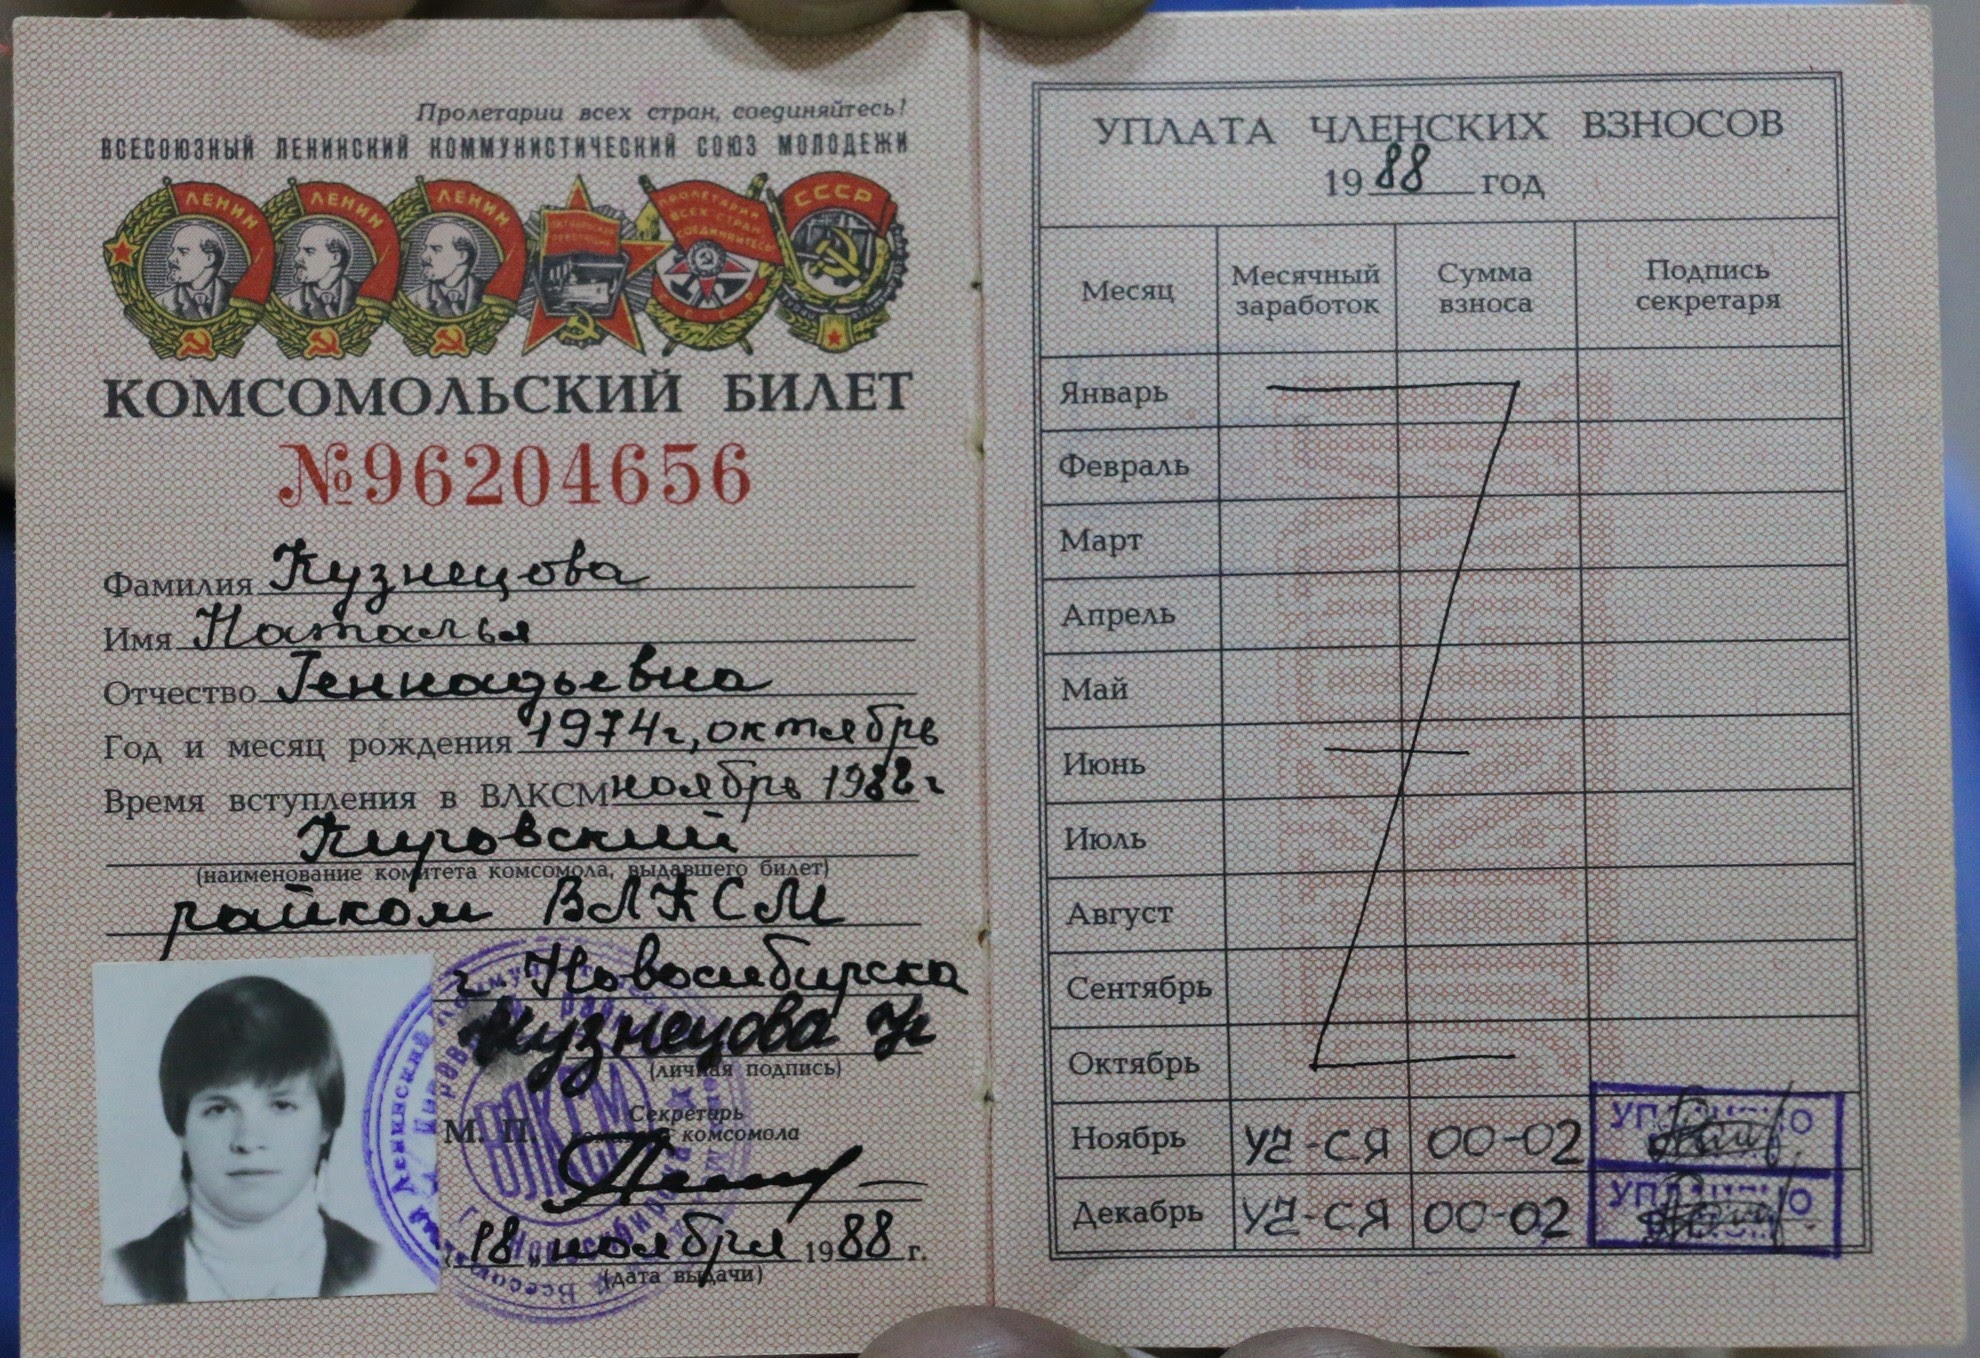 Пролетарии всех стран, соединяйтесь!
ВСЕСОЮЗНЫЙ ЛЕНИНСКИЙ КОММУНИСТИЧЕСКИЙ СОЮЗ МОЛОДЕЖИ
ЛЕНИН ЛЕНИН ЛЕНИН ОКТЯБРЬСКАЯ РЕВОЛЮЦИЯ ПРОЛЕТАРИИ ВСЕХ СТРАН СОЕДИНЯЙТЕСЬ СССР
КОМСОМОЛЬСКИЙ БИЛЕТ
№96204656
Фамилия Кузнецова
Имя Наталья
Отчество Геннадьевна
Год и месяц рождения 1974г, октябрь
Время вступления в ВЛКСМ ноябрь 1988г
Кировский
(наименование комитета комсомола, выдавшего билет)
райком ВЛКСМ
г. Новосибирска
Кузнецова
(личная подпись)
М. П. Секретарь
комсомола
ВЛКСМ
„18„ ноября 1988 г.
(дата выдачи)
УПЛАТА ЧЛЕНСКИХ ВЗНОСОВ
1988 год
Месяц Месячный заработок Сумма взноса Подпись секретаря
Январь
Февраль
Март
Апрель
Май
Июнь
Июль
Август
Сентябрь
Октябрь
Ноябрь уч-ся 00-02 УПЛАЧЕНО
Декабрь уч-ся 00-02 УПЛАЧЕНО